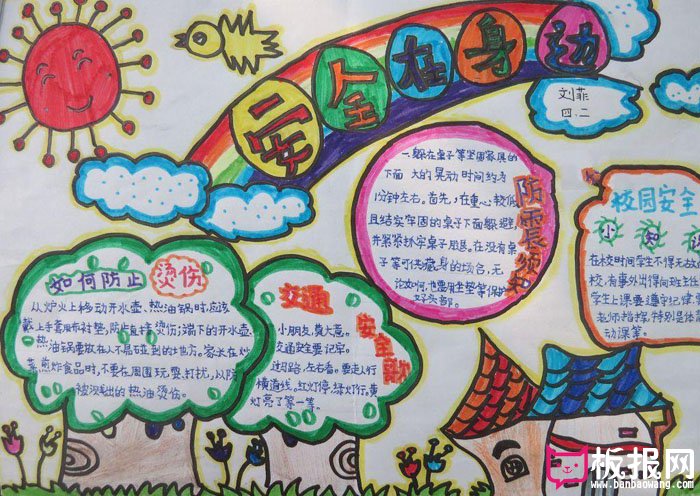 安全在身边
刘菲
四.二
防震须知
一.躲在桌子等坚固家具的
下面 大的晃动时间约为
1分钟左右。首先,在重心较低
且结实牢固的桌子下面躲避,
并紧紧抓牢桌子腿。在没有桌
子等可供藏身的场合,无
论如何,也要用坐垫等保护
好头部。
校园安全
小知
在校时间学生不得无故
校,有事外出得向班主任
学生上课要遵守纪律
老师指挥,特别是体
动课等。
如何防止烫伤
从炉火上移动开水壶、热油锅时,应该
戴上手套用布衬垫,防止直接烫伤;端下的开水壶、
热油锅要放在人不易碰到的地方。家长在炒
菜、煎炸食品时,不要在周围玩耍、打扰,以防
被溅出的热油烫伤。
交通安全歌
小朋友,莫大意。
交通安全要记牢。
过马路,左右看。要走人行
横道线,红灯停,绿灯行。黄
灯亮了等一等。
板报网
www.banbaowang.com